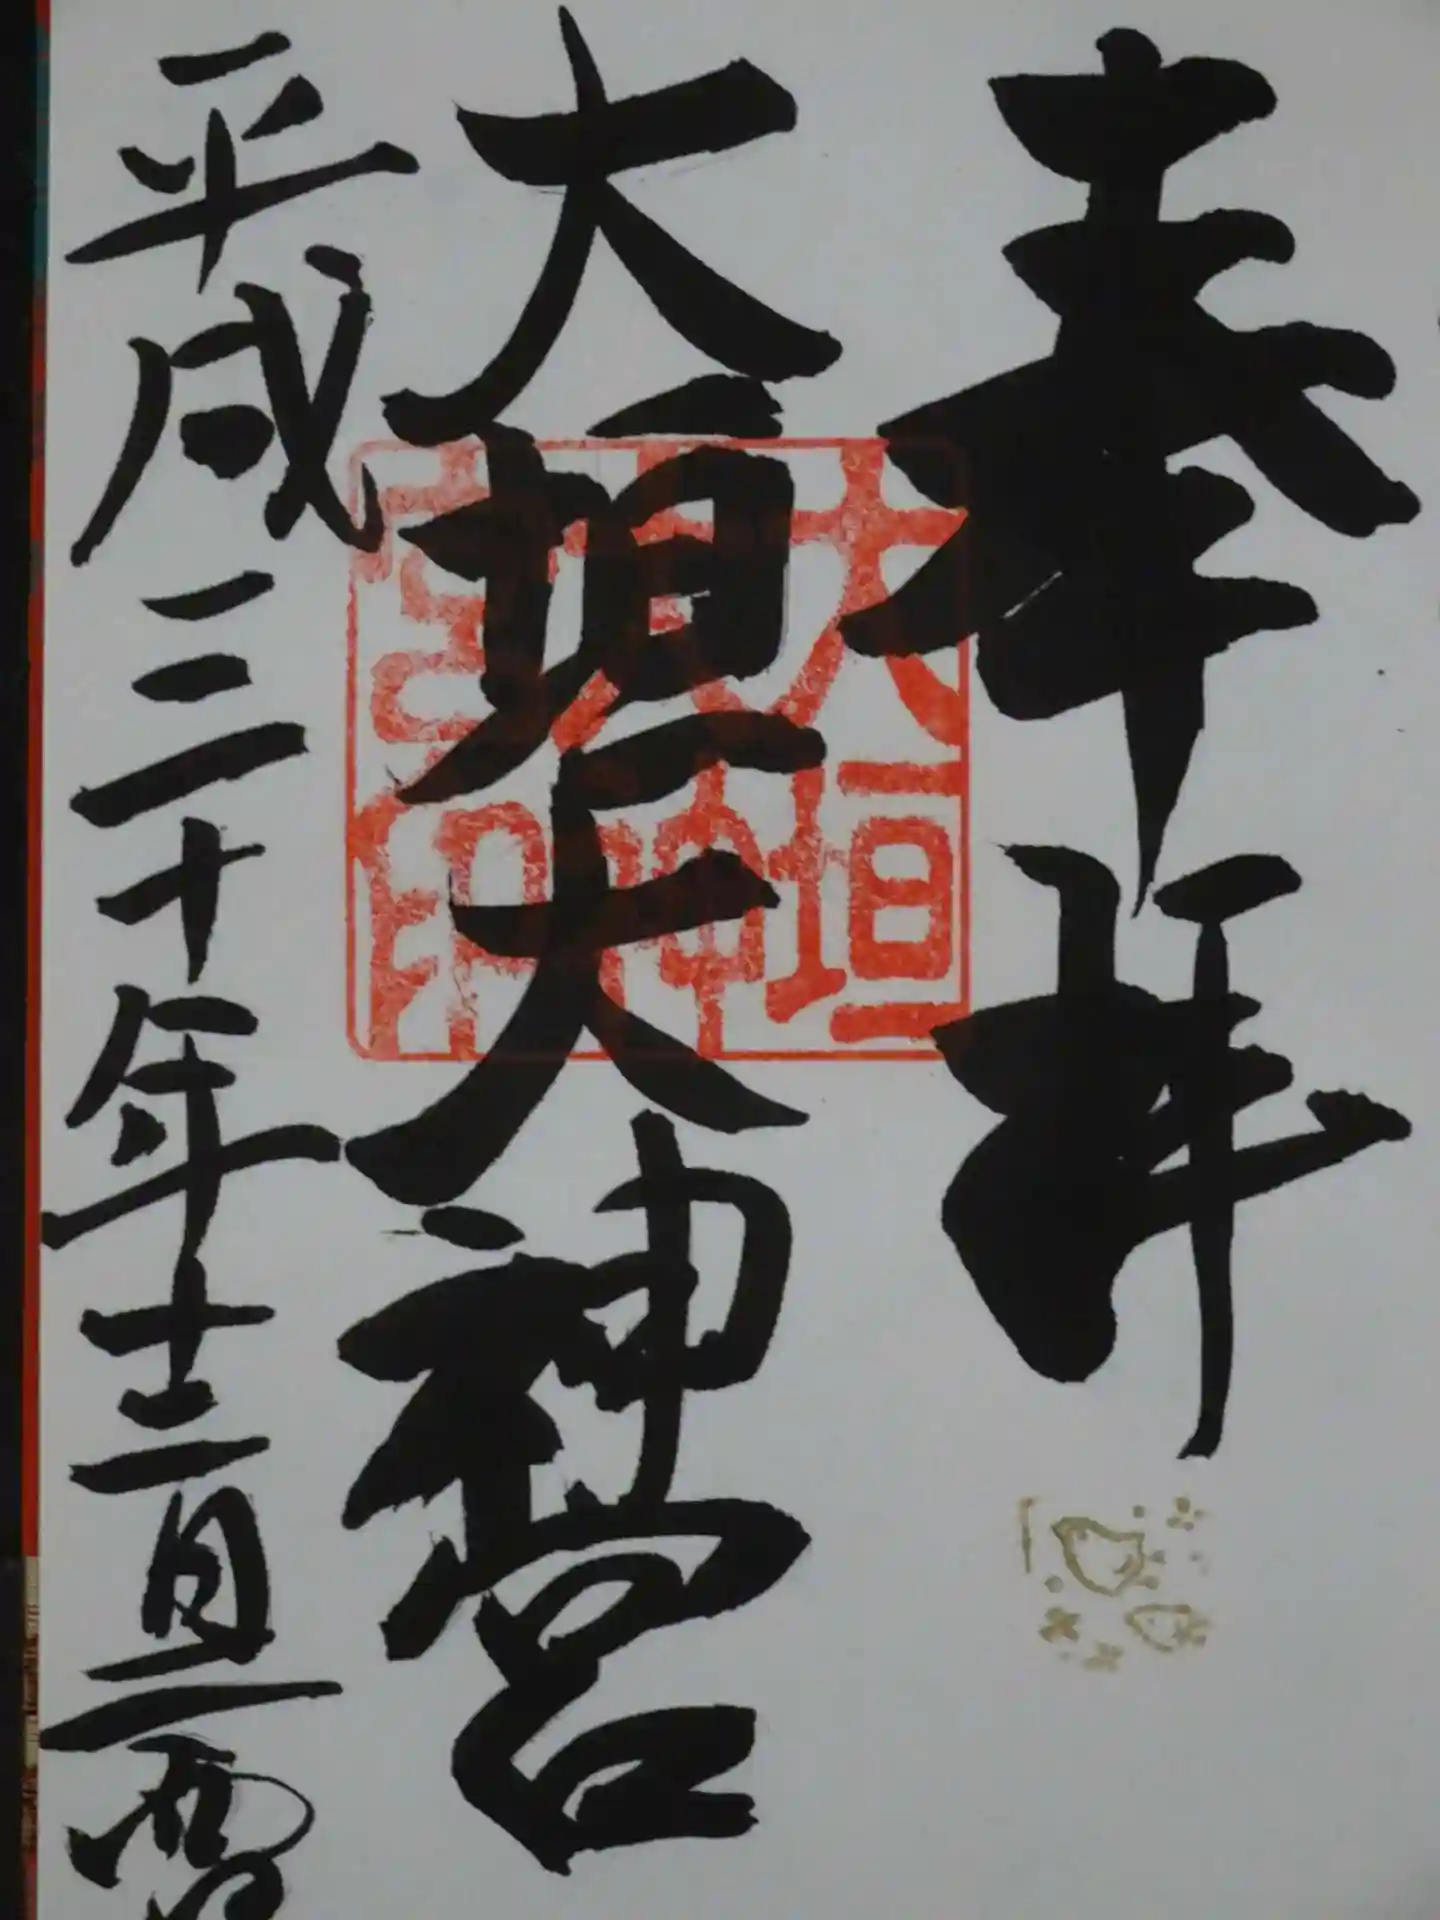 奉拝
大垣大神宮
平成三十年十二月二
大垣大神宮印